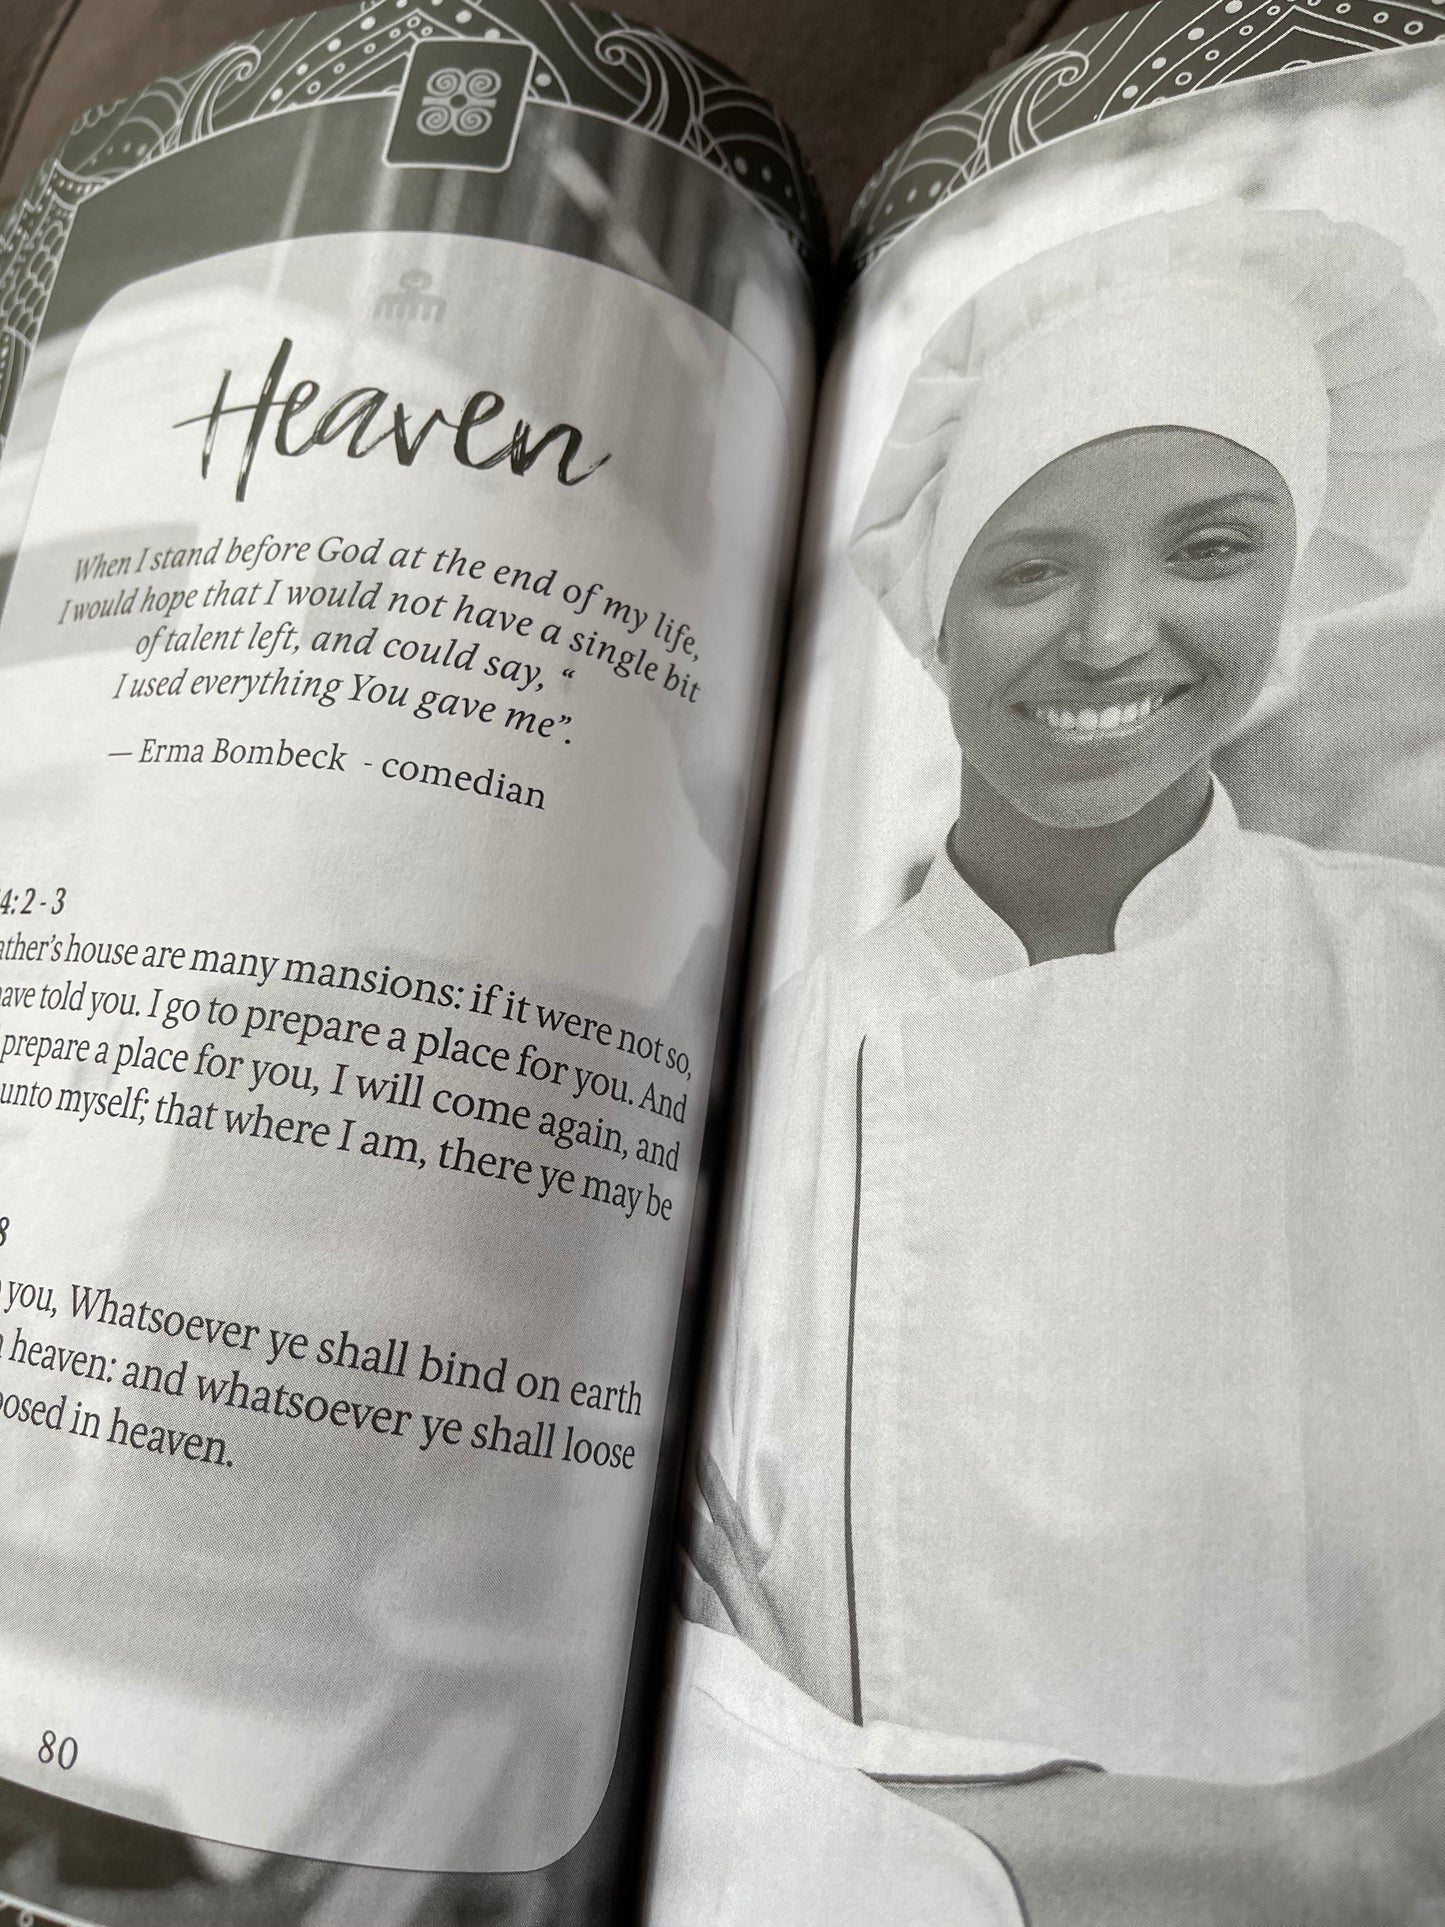 Heaven
When I stand before God at the end of my life,
I would hope that I would not have a single bit
of talent left, and could say, “
I used everything You gave me”.
— Erma Bombeck - comedian
4:2-3
ather’s house are many mansions: if it were not so,
ave told you. I go to prepare a place for you. And
prepare a place for you, I will come again, and
unto myself; that where I am, there ye may be
8
you, Whatsoever ye shall bind on earth
heaven: and whatsoever ye shall loose
oosed in heaven.
80